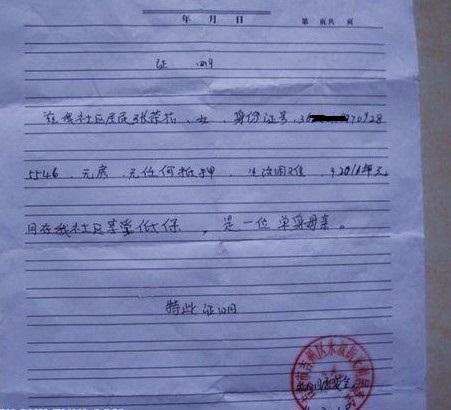 年 月 日 第 页共 页
证 明
兹我社区居民张荣花，女，身份证号，36 70928
5546，无房，无任何抵押，生活困难，于2011年元
月在我社区享受低保，是一位单亲母亲。
特此证明